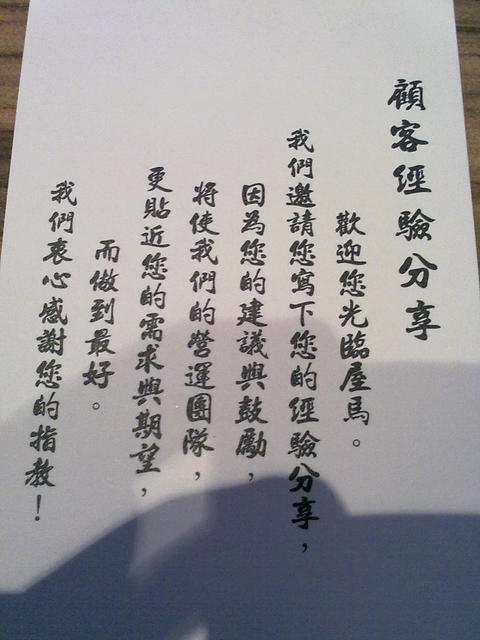 顧客經驗分享
歡迎您光臨屋馬。
我們邀請您寫下您的經驗分享，
因為您的建議與鼓勵，
將使我們的營運團隊，
更貼近您的需求與期望，
而做到最好。
我們衷心感謝您的指教！